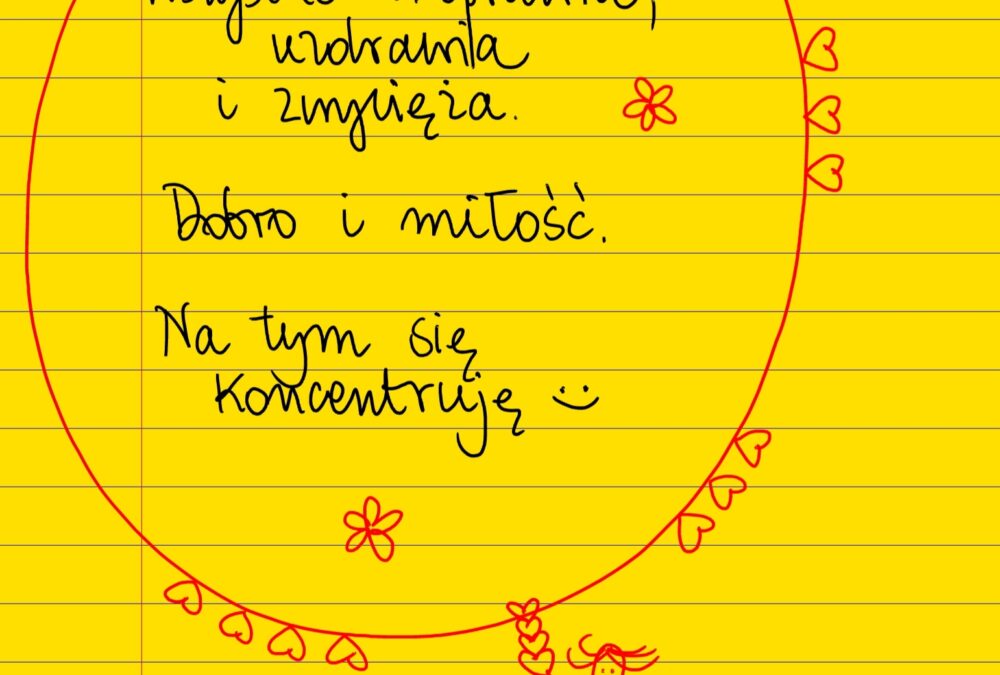 uzdrawia
i zwycięża.
Dobro i miłość.
Na tym się
koncentruję :)